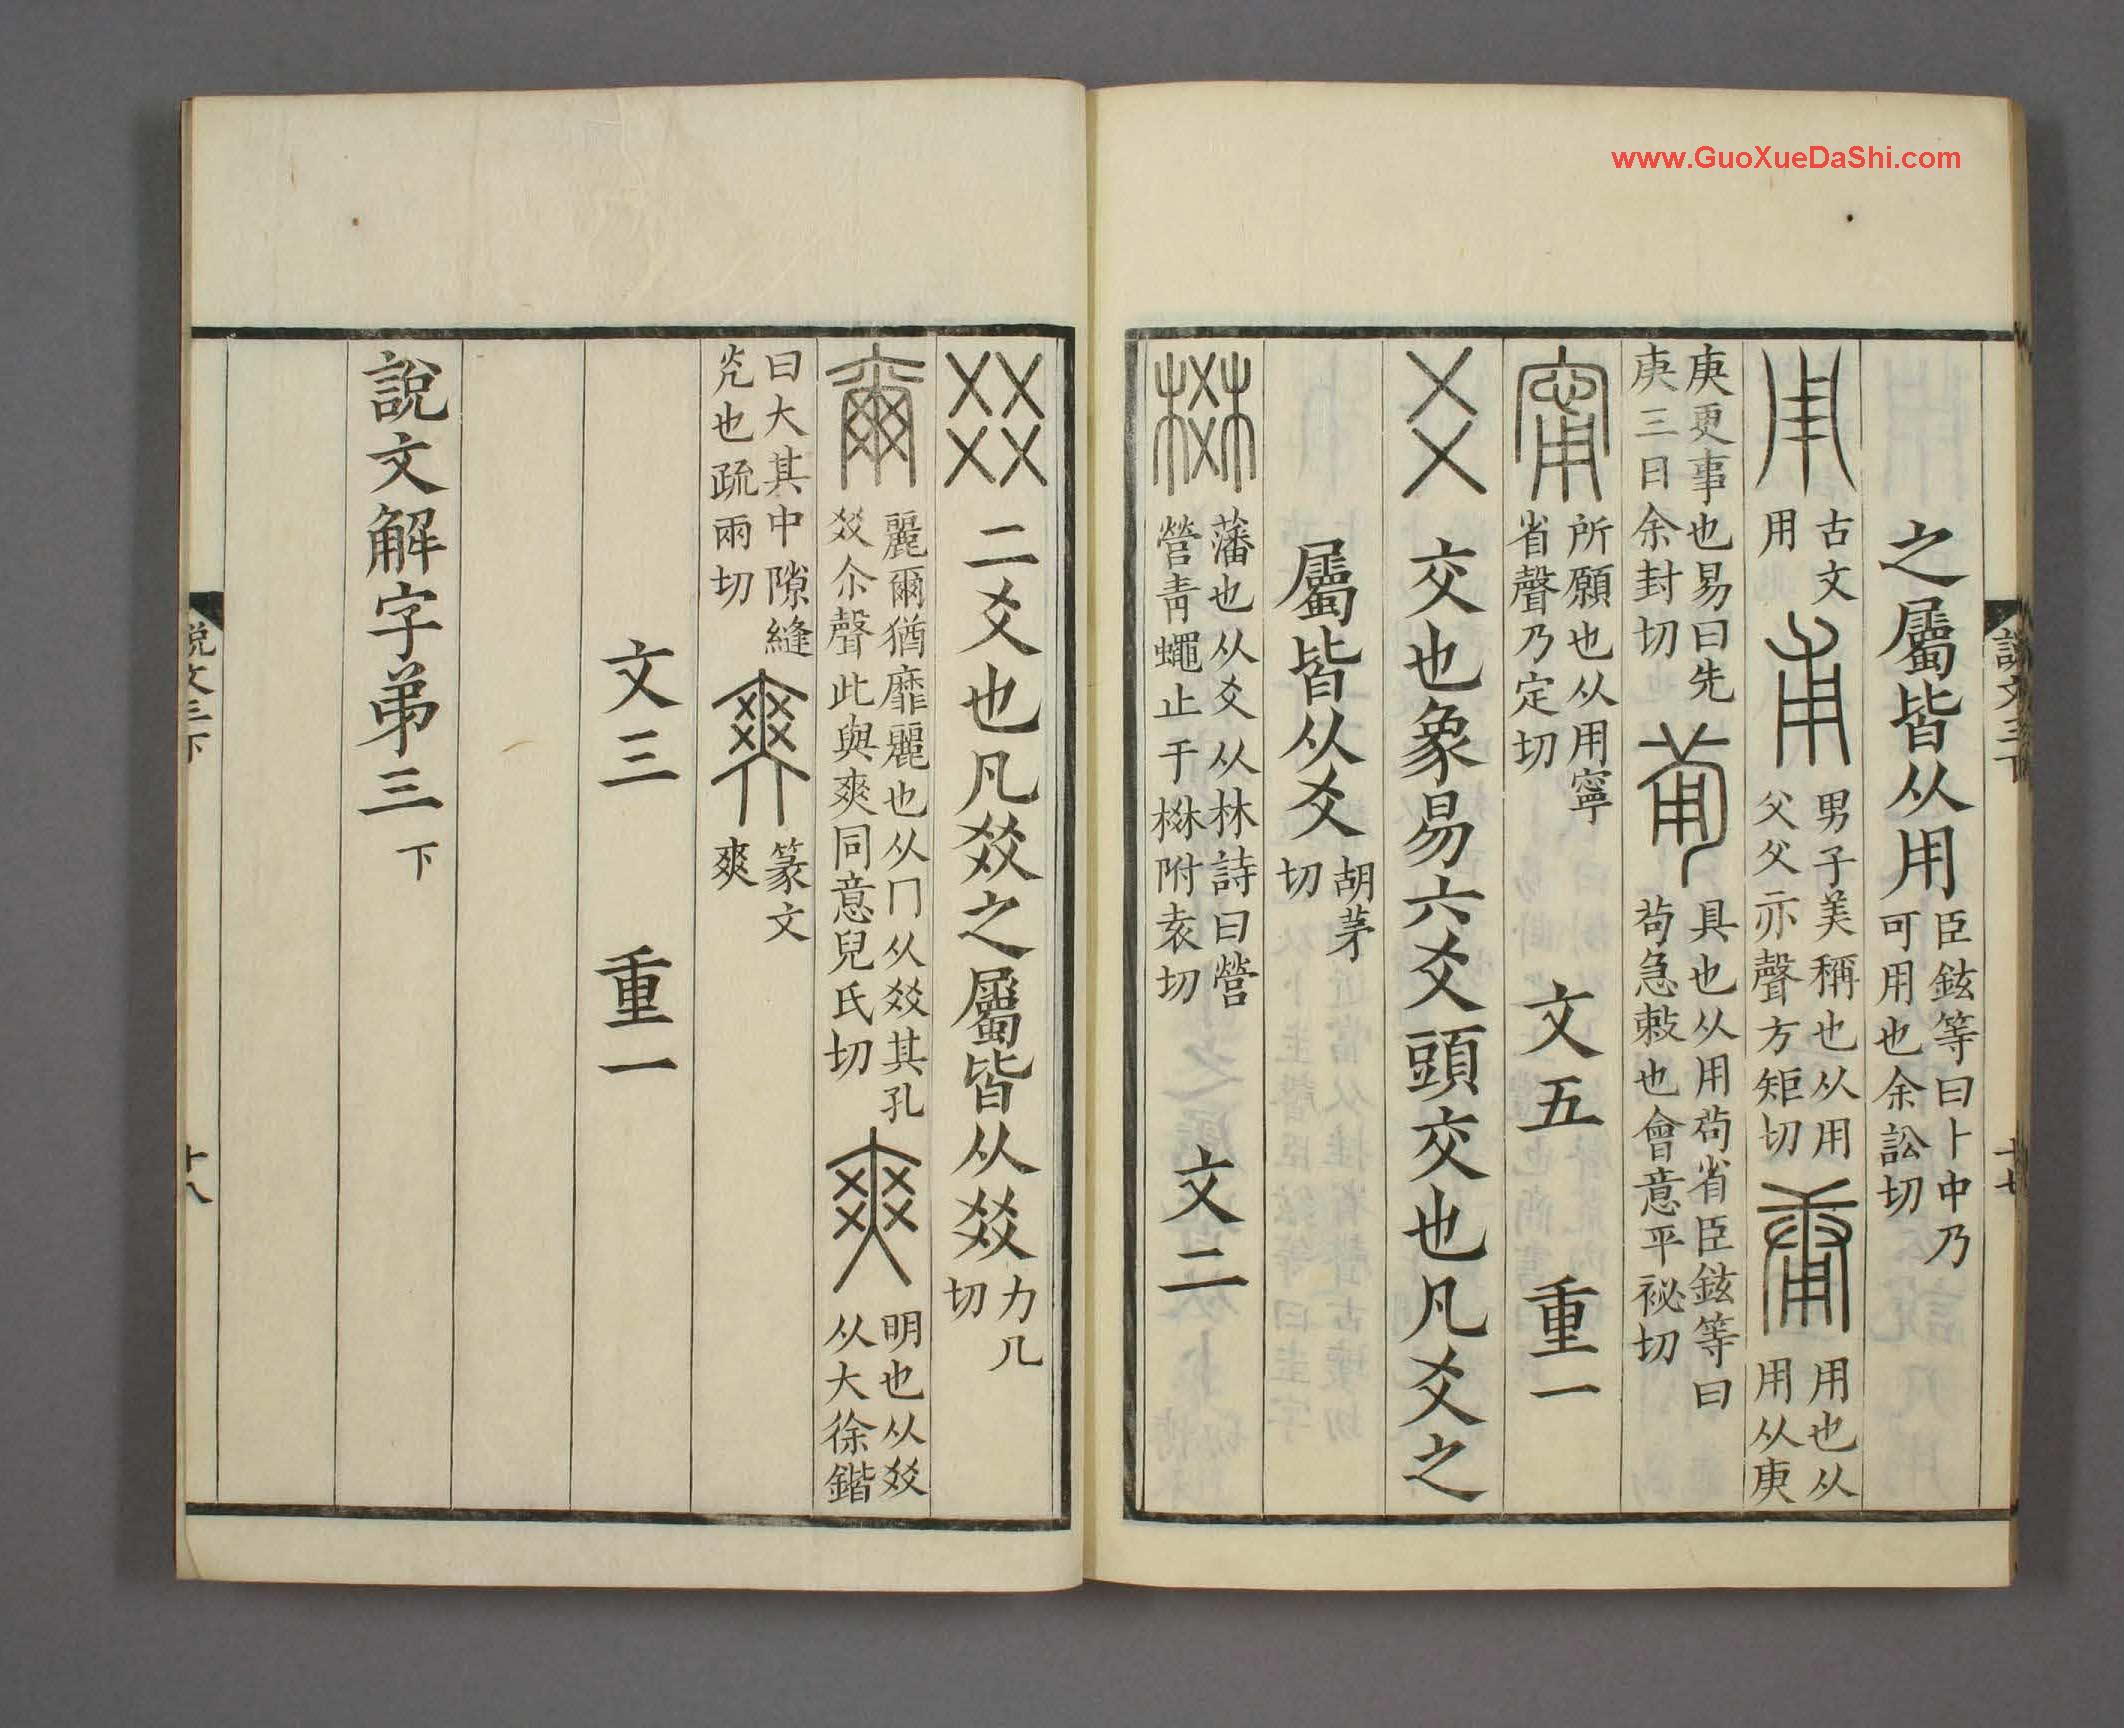 www.GuoXueDaShi.com
說文三下
十七
之屬皆从用臣鉉等曰卜中乃可用也余訟切
古文用
男子美稱也从用父父亦聲方矩切
用也从用从庚
庚更事也易曰先庚三日余封切
具也从用茍省臣鉉等曰茍急敕也會意平祕切
所願也从用寧省聲乃定切
文五 重一
爻 交也象易六爻頭交也凡爻之
屬皆从爻胡茅切
棥 藩也从爻从林詩曰營營青蠅止于棥附袁切
文二
㸚 二爻也凡㸚之屬皆从㸚力几切
爾 麗爾猶靡麗也从冂从㸚其孔㸚尒聲此與爽同意兒氏切
爽 明也从㸚从大徐鍇
曰大其中隙縫光也疏兩切
篆文爽
文三 重一
說文解字弟三下
說文三下
十八